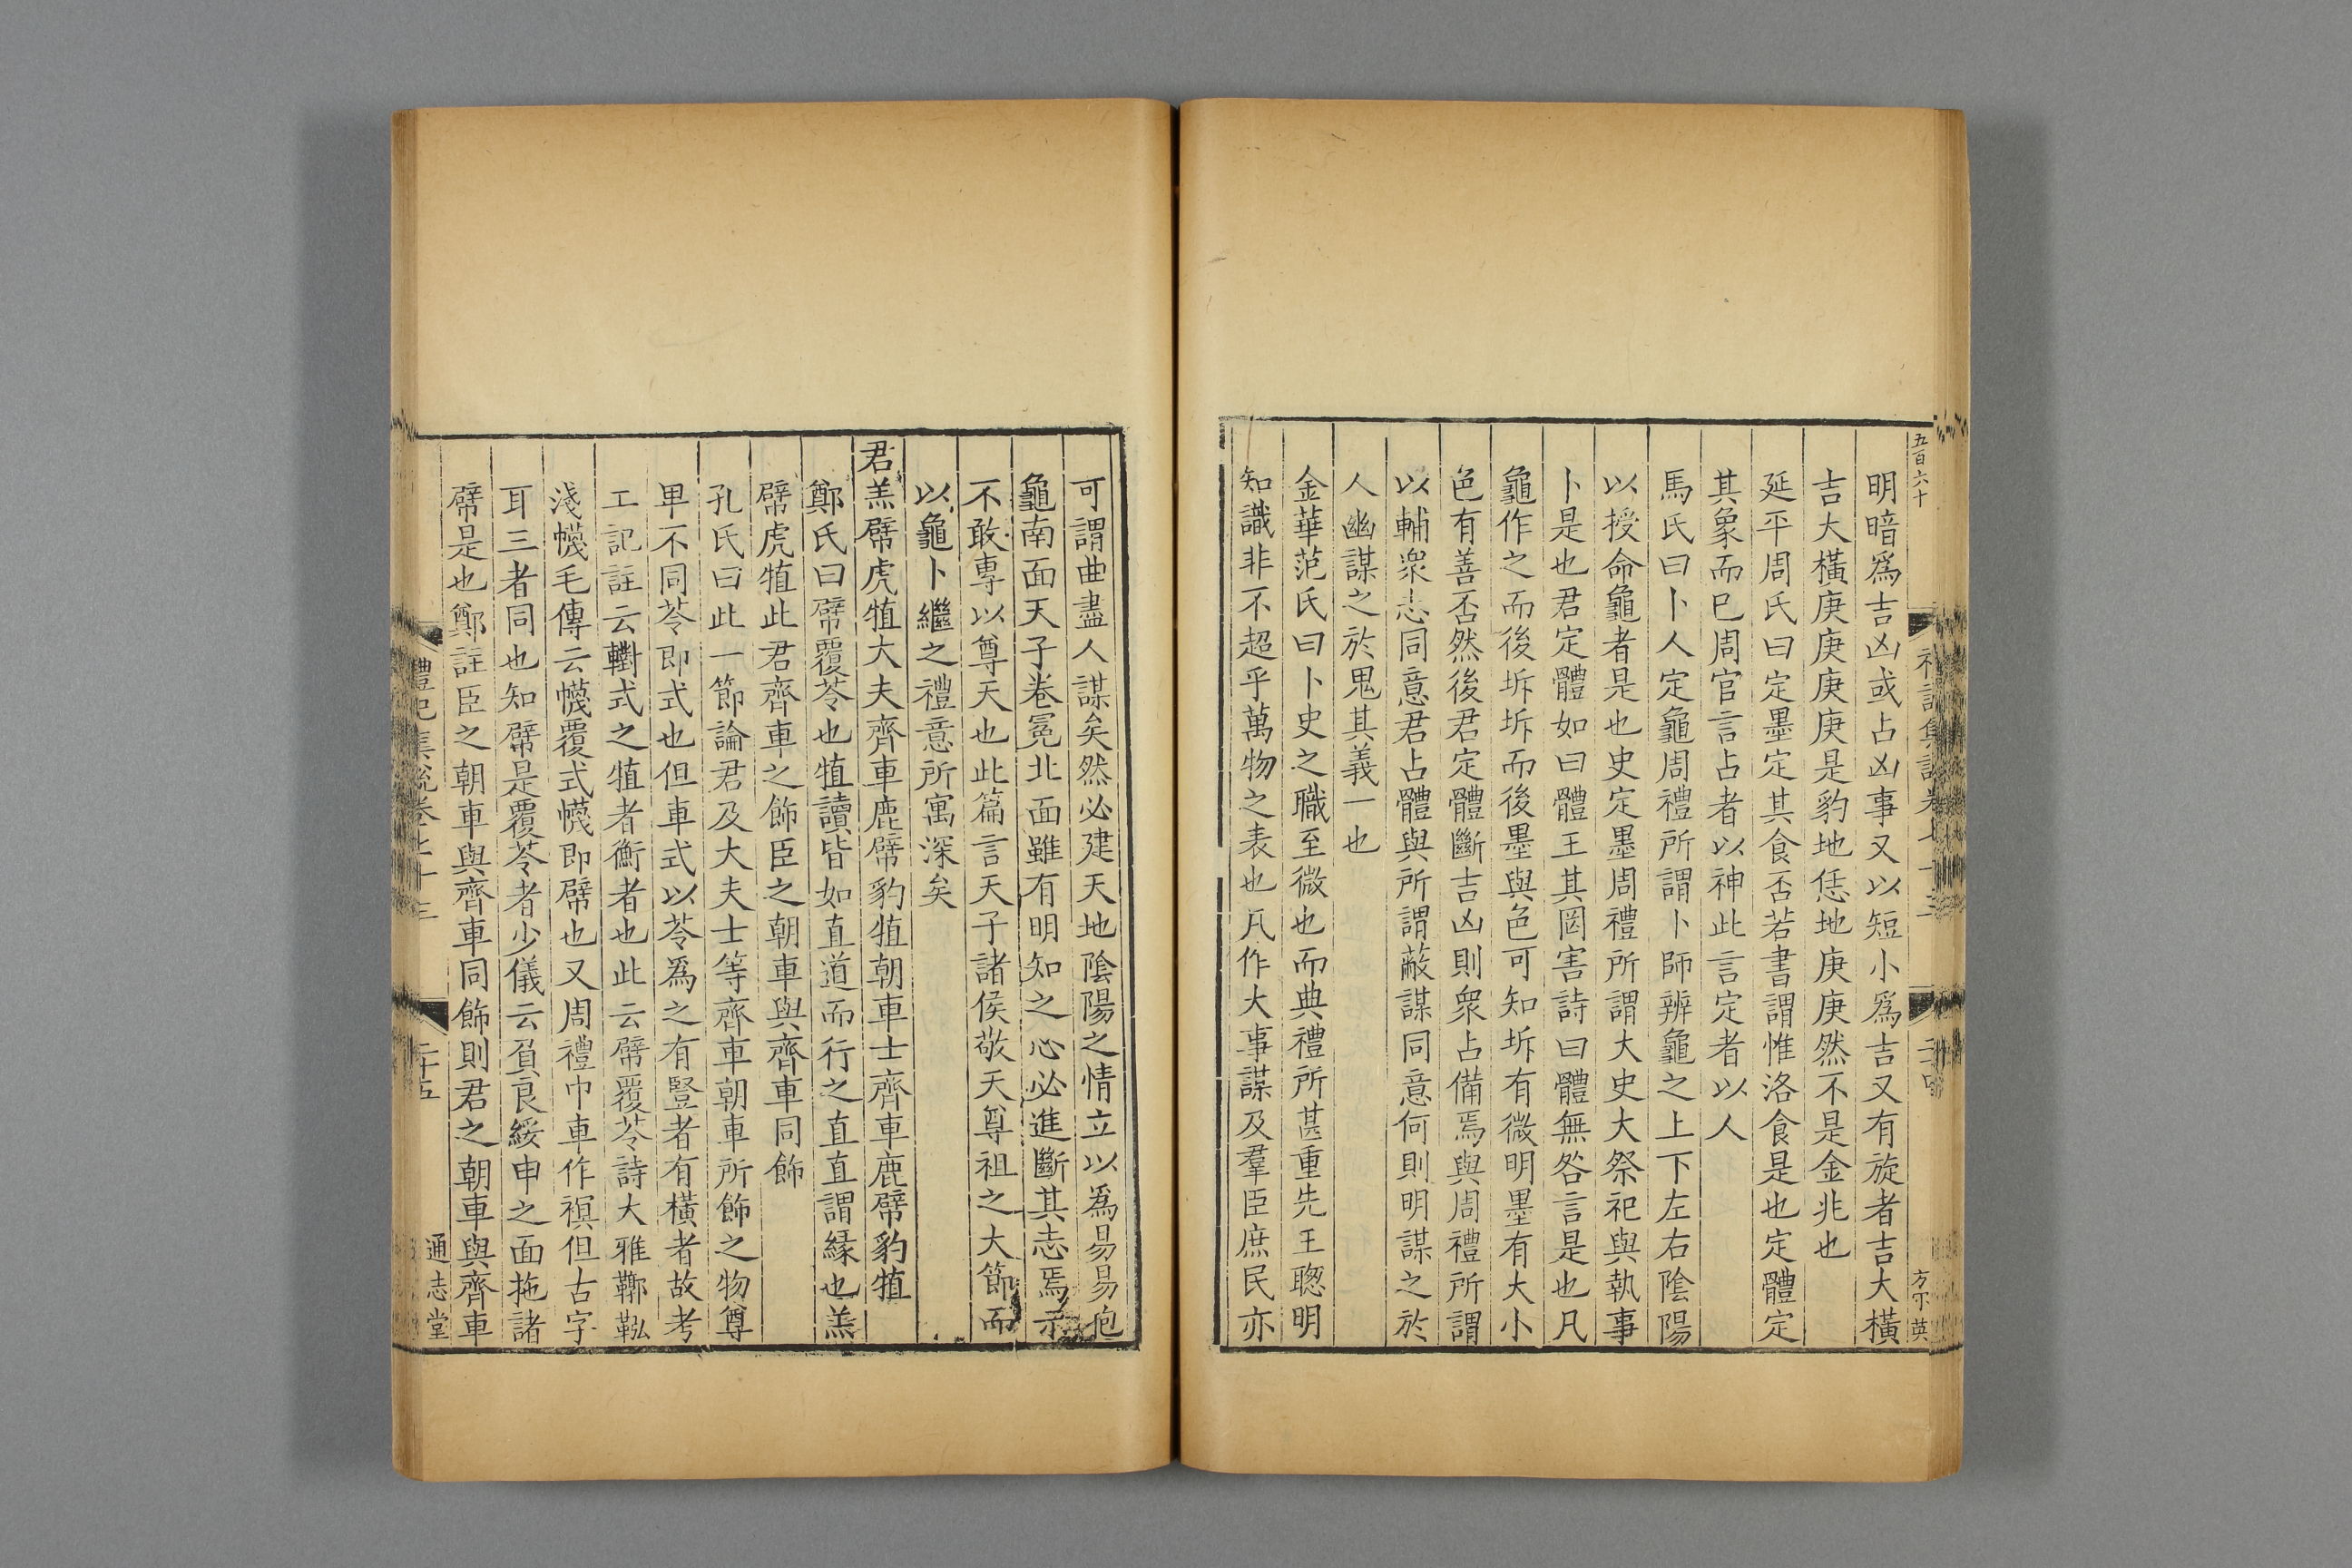 五百六十
明暗爲吉凶或占凶事又以短小爲吉又有旋者吉大橫
吉大橫庚庚庚庚是豹地恁地庚庚然不是金兆也
延平周氏曰定墨定其食否若書謂惟洛食是也定體定
其象而已周官言占者以神此言定者以人
馬氏曰卜人定龜周禮所謂卜師辨龜之上下左右陰陽
以授命龜者是也史定墨周禮所謂大史大祭祀與執事
卜是也君定體如曰體王其罔害詩曰體無咎言是也凡
龜作之而後坼坼而後墨與色可知坼有微明墨有大小
色有善否然後君定體斷吉凶則衆占備焉與周禮所謂
以輔衆志同意君占體與所謂蔽謀同意何則明謀之於
人幽謀之於鬼其義一也
金華范氏曰卜史之職至微也而典禮所甚重先王聰明
知識非不超乎萬物之表也凡作大事謀及羣臣庶民亦
可謂曲盡人謀矣然必建天地陰陽之情立以爲易易抱
龜南面天子卷冕北面雖有明知之心必進斷其志焉示
不敢專以尊天也此篇言天子諸侯敬天尊祖之大節而
以龜卜繼之禮意所寓深矣
君羔幦虎犆大夫齊車鹿幦豹犆朝車士齊車鹿幦豹犆
鄭氏曰幦覆苓也犆讀皆如直道而行之直直謂緣也羔
幦虎犆此君齊車之飾臣之朝車與齊車同飾
孔氏曰此一節論君及大夫士等齊車朝車所飾之物尊
卑不同苓即式也但車式以苓爲之有豎者有橫者故考
工記註云轛式之犆者衡者也此云幦覆苓詩大雅鞹鞃
淺幭毛傳云幭覆式幭即幦也又周禮巾車作𧜀但古字
耳三者同也知幦是覆苓者少儀云負良綏申之面拖諸
幦是也鄭註臣之朝車與齊車同飾則君之朝車與齊車
禮記集說卷七十三
二十五
通志堂